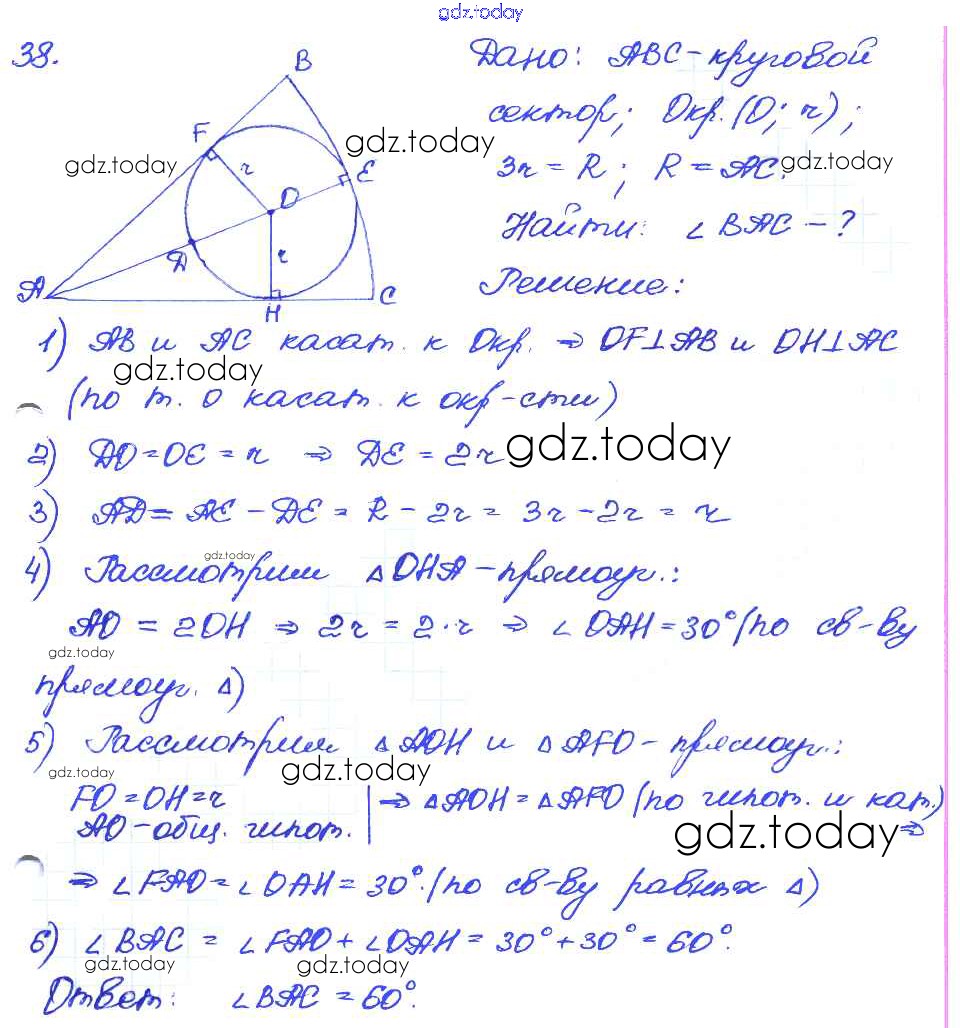 gdz.today
38.
Дано: ABC - круговой
сектор; Окр.(O; r);
3r = R; R = AC.
Найти: ∠BAC - ?
Решение:
B
F
E
r
O
D
r
A
H
C
gdz.today
gdz.today
gdz.today
1) AB и AC касат. к Окр. ⇒ OF⊥AB и OH⊥AC
gdz.today
(по т. о касат. к окр-сти)
2) DO = OE = r ⇒ DE = 2r
gdz.today
3) AD = AE - DE = R - 2r = 3r - 2r = r
gdz.today
4) Рассмотрим ΔOHA - прямоуг.:
AO = 2OH ⇒ 2r = 2·r ⇒ ∠OAH = 30° (по св-ву
gdz.today
прямоуг. Δ)
5) Рассмотрим ΔAOH и ΔAFO - прямоуг.:
gdz.today
gdz.today
FO = OH = r | ⇒ ΔAOH = ΔAFO (по гипот. и кат.)
AO - общ. гипот. | ⇒
gdz.today
⇒ ∠FAO = ∠OAH = 30°. (по св-ву равных Δ)
6) ∠BAC = ∠FAO + ∠OAH = 30° + 30° = 60°.
gdz.today
gdz.today
Ответ: ∠BAC = 60°.